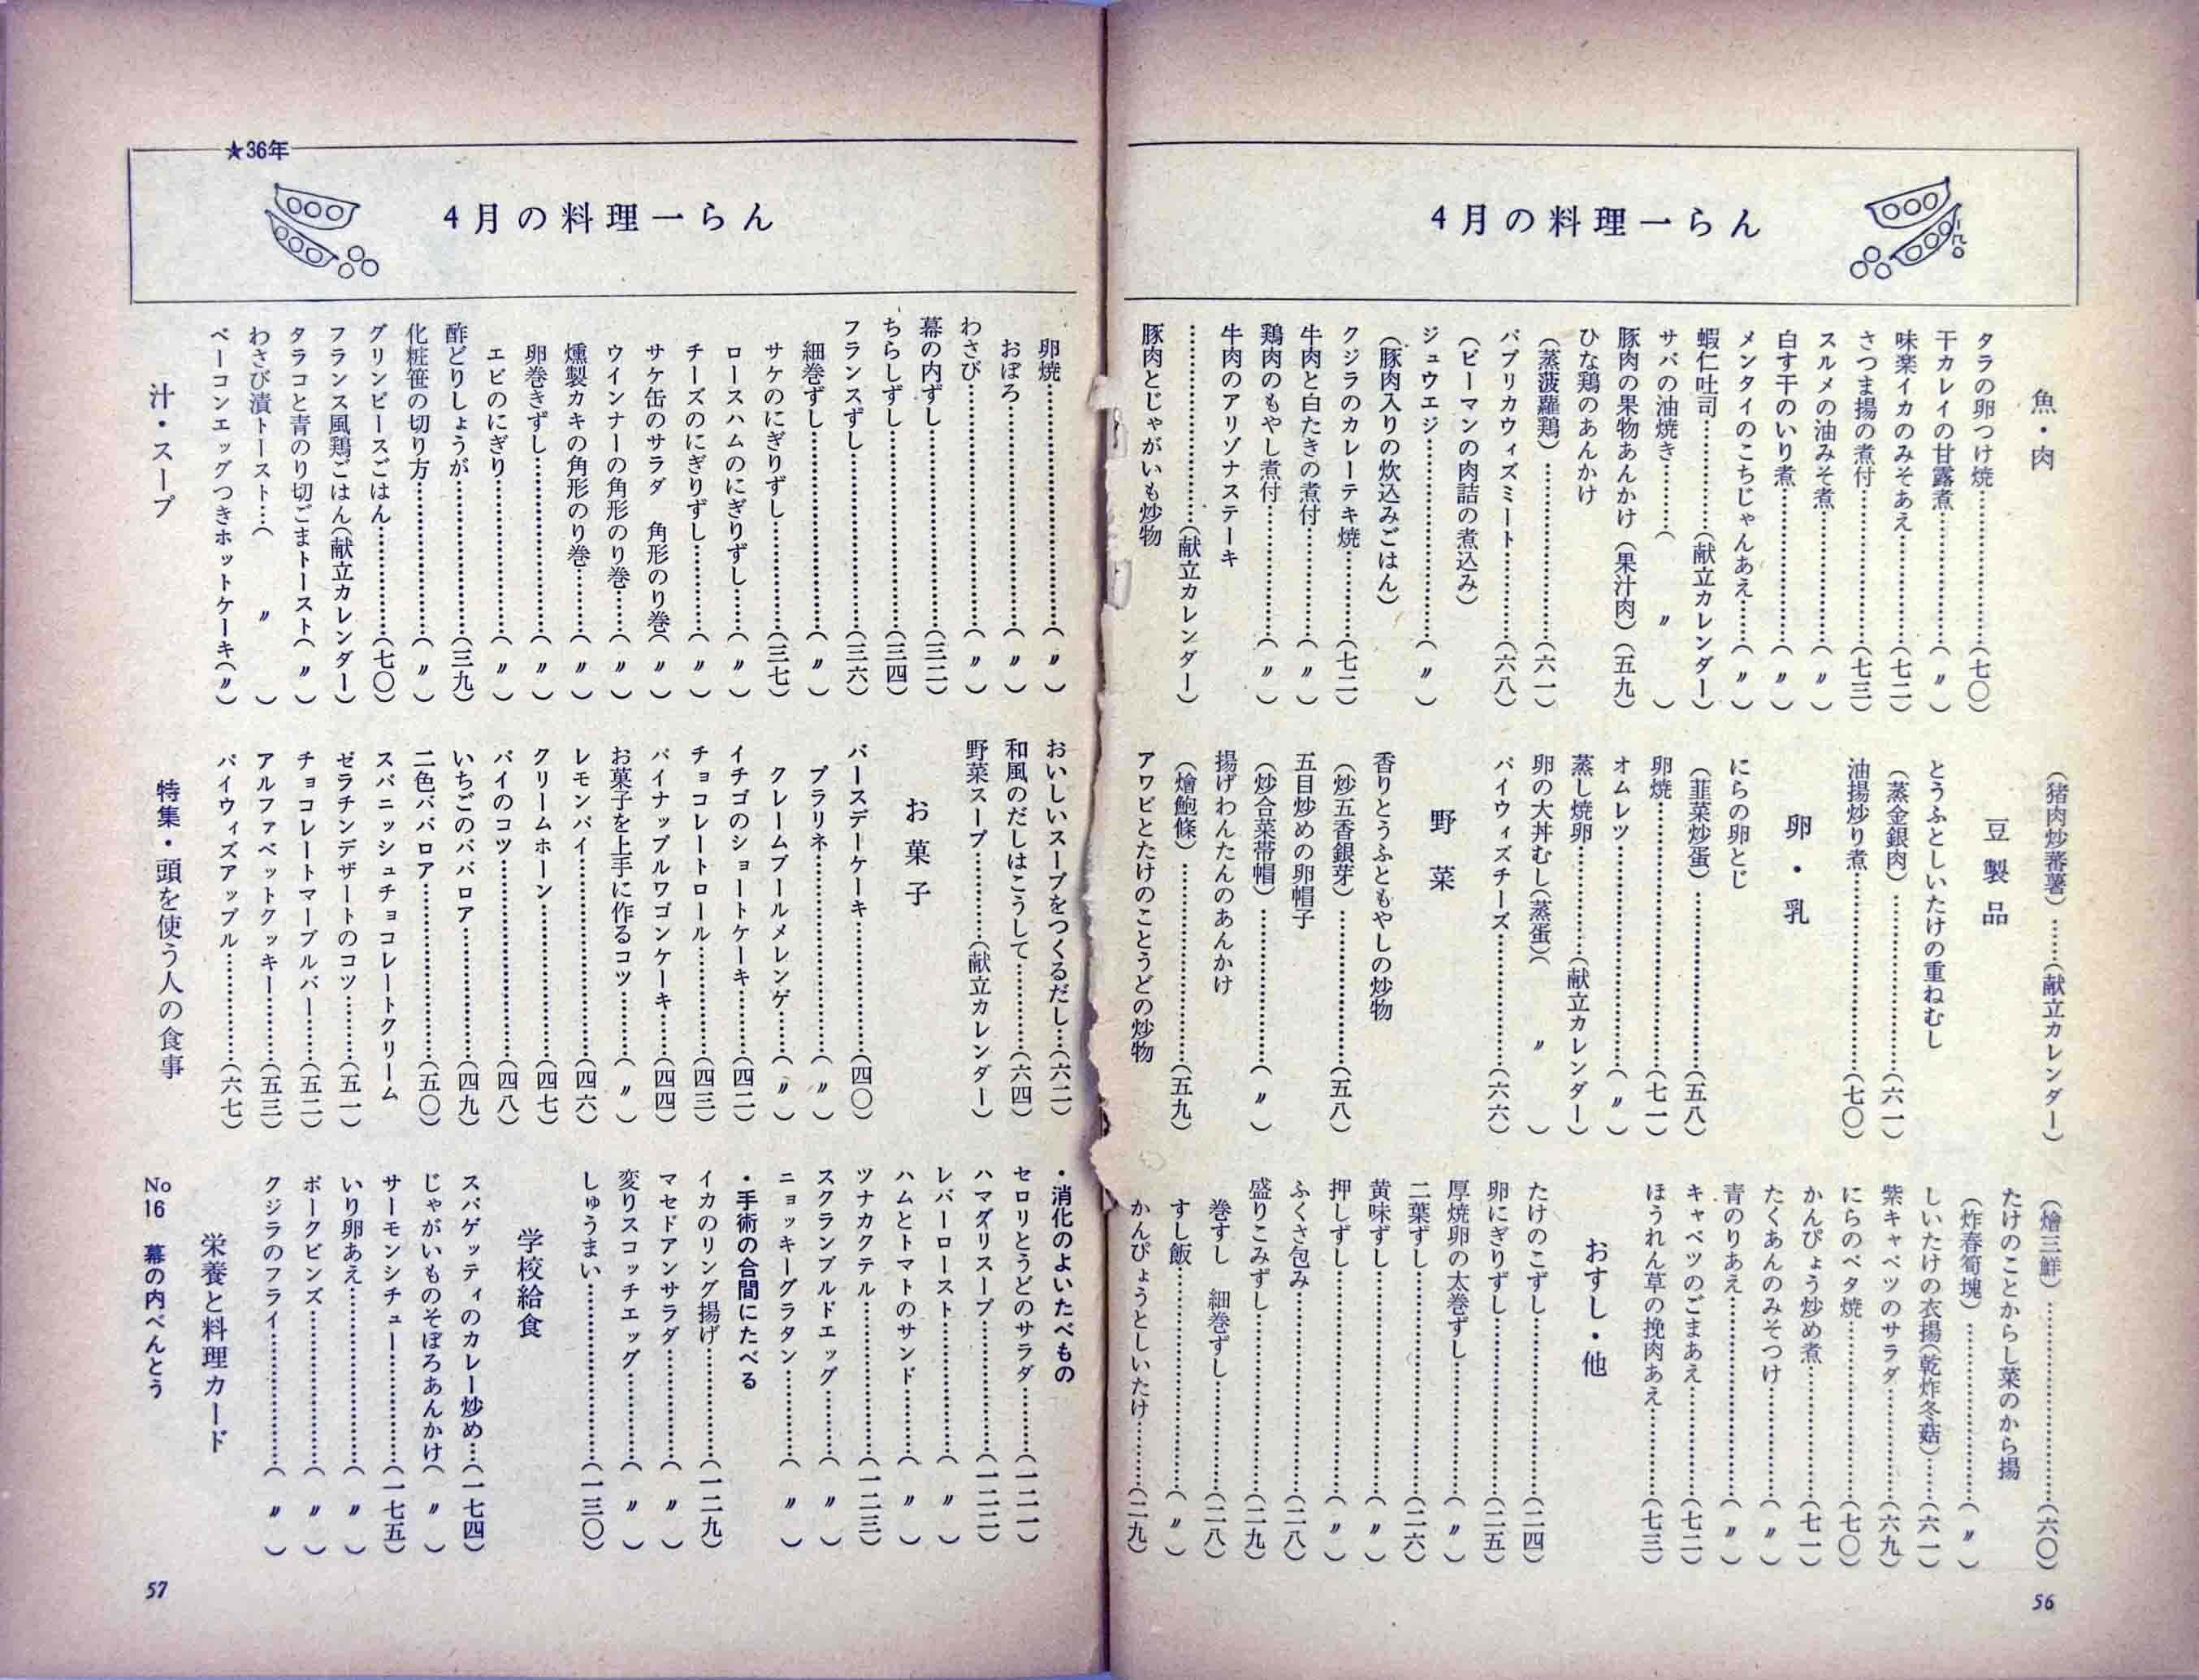 4月の料理一らん
魚・肉
タラの卵つけ焼……………(七〇)
干カレイの甘露煮……………(〃)
味楽イカのみそあえ…………(七二)
さつま揚の煮付………………(七三)
スルメの油みそ煮……………(〃)
白す干のいり煮………………(〃)
メンタイのこちじゃんあえ……(〃)
蝦仁吐司…………(献立カレンダー)
サバの油焼き………(〃)
豚肉の果物あんかけ(果汁肉)(五九)
ひな鶏のあんかけ
(蒸菠蘿鶏)…………………(六一)
パプリカウィズミート…………(六八)
(ピーマンの肉詰の煮込み)
ジュウエジ……………………(〃)
(豚肉入りの炊込みごはん)
クジラのカレーテキ焼…………(七二)
牛肉と白たきの煮付……………(〃)
鶏肉のもやし煮付………………(〃)
牛肉のアリゾナステーキ
……………………(献立カレンダー)
豚肉とじゃがいも炒物
(猪肉炒蕃薯)……(献立カレンダー)
豆製品
とうふとしいたけの重ねむし
(蒸金銀肉)…………………(六一)
油揚炒り煮……………………(七〇)
卵・乳
にらの卵とじ
(韮菜炒蛋)…………………(五八)
卵焼……………………………(七一)
オムレツ………………………(〃)
蒸し焼卵…………(献立カレンダー)
卵の大丼むし(蒸蛋)(〃)
パイウィズチーズ……………(六六)
野菜
香りとうふともやしの炒物
(炒五香銀芽)………………(五八)
五目炒めの卵帽子
(炒合菜帯帽)………………(〃)
揚げわんたんのあんかけ
(燴鮑條)……………………(五九)
アワビとたけのことうどの炒物
(燴三鮮)……………………(六〇)
たけのことからし菜のから揚
(炸春筍塊)…………………(〃)
しいたけの衣揚(乾炸冬菇)……(六一)
紫キャベツのサラダ…………(六九)
にらのベタ焼…………………(七〇)
かんぴょう炒め煮……………(七一)
たくあんのみそつけ…………(〃)
青のりあえ……………………(〃)
キャベツのごまあえ…………(七二)
ほうれん草の挽肉あえ………(七三)
おすし・他
たけのこずし…………………(二四)
卵にぎりずし…………………(二五)
厚焼卵の太巻ずし……………(〃)
二葉ずし………………………(二六)
黄味ずし………………………(〃)
押しずし………………………(〃)
ふくさ包み……………………(二八)
盛りこみずし…………………(二九)
巻ずし　細巻ずし……………(二八)
すし飯…………………………(〃)
かんぴょうとしいたけ………(二九)
56
★36年
4月の料理一らん
卵焼……………………………(〃)
おぼろ…………………………(〃)
わさび…………………………(〃)
幕の内ずし……………………(三二)
ちらしずし……………………(三四)
フランスずし…………………(三六)
細巻ずし………………………(〃)
サケのにぎりずし……………(三七)
ロースハムのにぎりずし……(〃)
チーズのにぎりずし…………(〃)
サケ缶のサラダ　角形のり巻(〃)
ウインナーの角形のり巻……(〃)
燻製カキの角形のり巻………(〃)
卵巻きずし……………………(〃)
エビのにぎり…………………(〃)
酢どりしょうが………………(三九)
化粧笹の切り方………………(〃)
グリンピースごはん…………(七〇)
フランス風鶏ごはん(献立カレンダー)
タラコと青のり切ごまトースト(〃)
わさび漬トースト…(〃)
ベーコンエッグつきホットケーキ(〃)
汁・スープ
おいしいスープをつくるだし…(六二)
和風のだしはこうして………(六四)
野菜スープ…………(献立カレンダー)
お菓子
バースデーケーキ……………(四〇)
プラリネ………………………(〃)
クレームブールメレンゲ……(〃)
イチゴのショートケーキ……(四二)
チョコレートロール…………(四三)
パイナップルワゴンケーキ…(四四)
お菓子を上手に作るコツ……(〃)
レモンパイ……………………(四六)
クリームホーン………………(四七)
パイのコツ……………………(四八)
いちごのババロア……………(四九)
二色ババロア…………………(五〇)
スパニッシュチョコレートクリーム
ゼラチンデザートのコツ……(五一)
チョコレートマーブルバー…(五二)
アルファベットクッキー……(五三)
パイウィズアップル…………(六七)
特集・頭を使う人の食事
・消化のよいたべもの
セロリとうどのサラダ………(一二一)
ハマグリスープ………………(一二二)
レバーロースト………………(〃)
ハムとトマトのサンド………(〃)
ツナカクテル…………………(一二三)
スクランブルドエッグ………(〃)
ニョッキーグラタン…………(〃)
・手術の合間にたべる
イカのリング揚げ……………(一二九)
マセドアンサラダ……………(〃)
変りスコッチエッグ…………(〃)
しゅうまい……………………(一三〇)
学校給食
スパゲッティのカレー炒め…(一七四)
じゃがいものそぼろあんかけ(〃)
サーモンシチュー……………(一七五)
いり卵あえ……………………(〃)
ポークビンズ…………………(〃)
クジラのフライ………………(〃)
栄養と料理カード
No16　幕の内べんとう
57